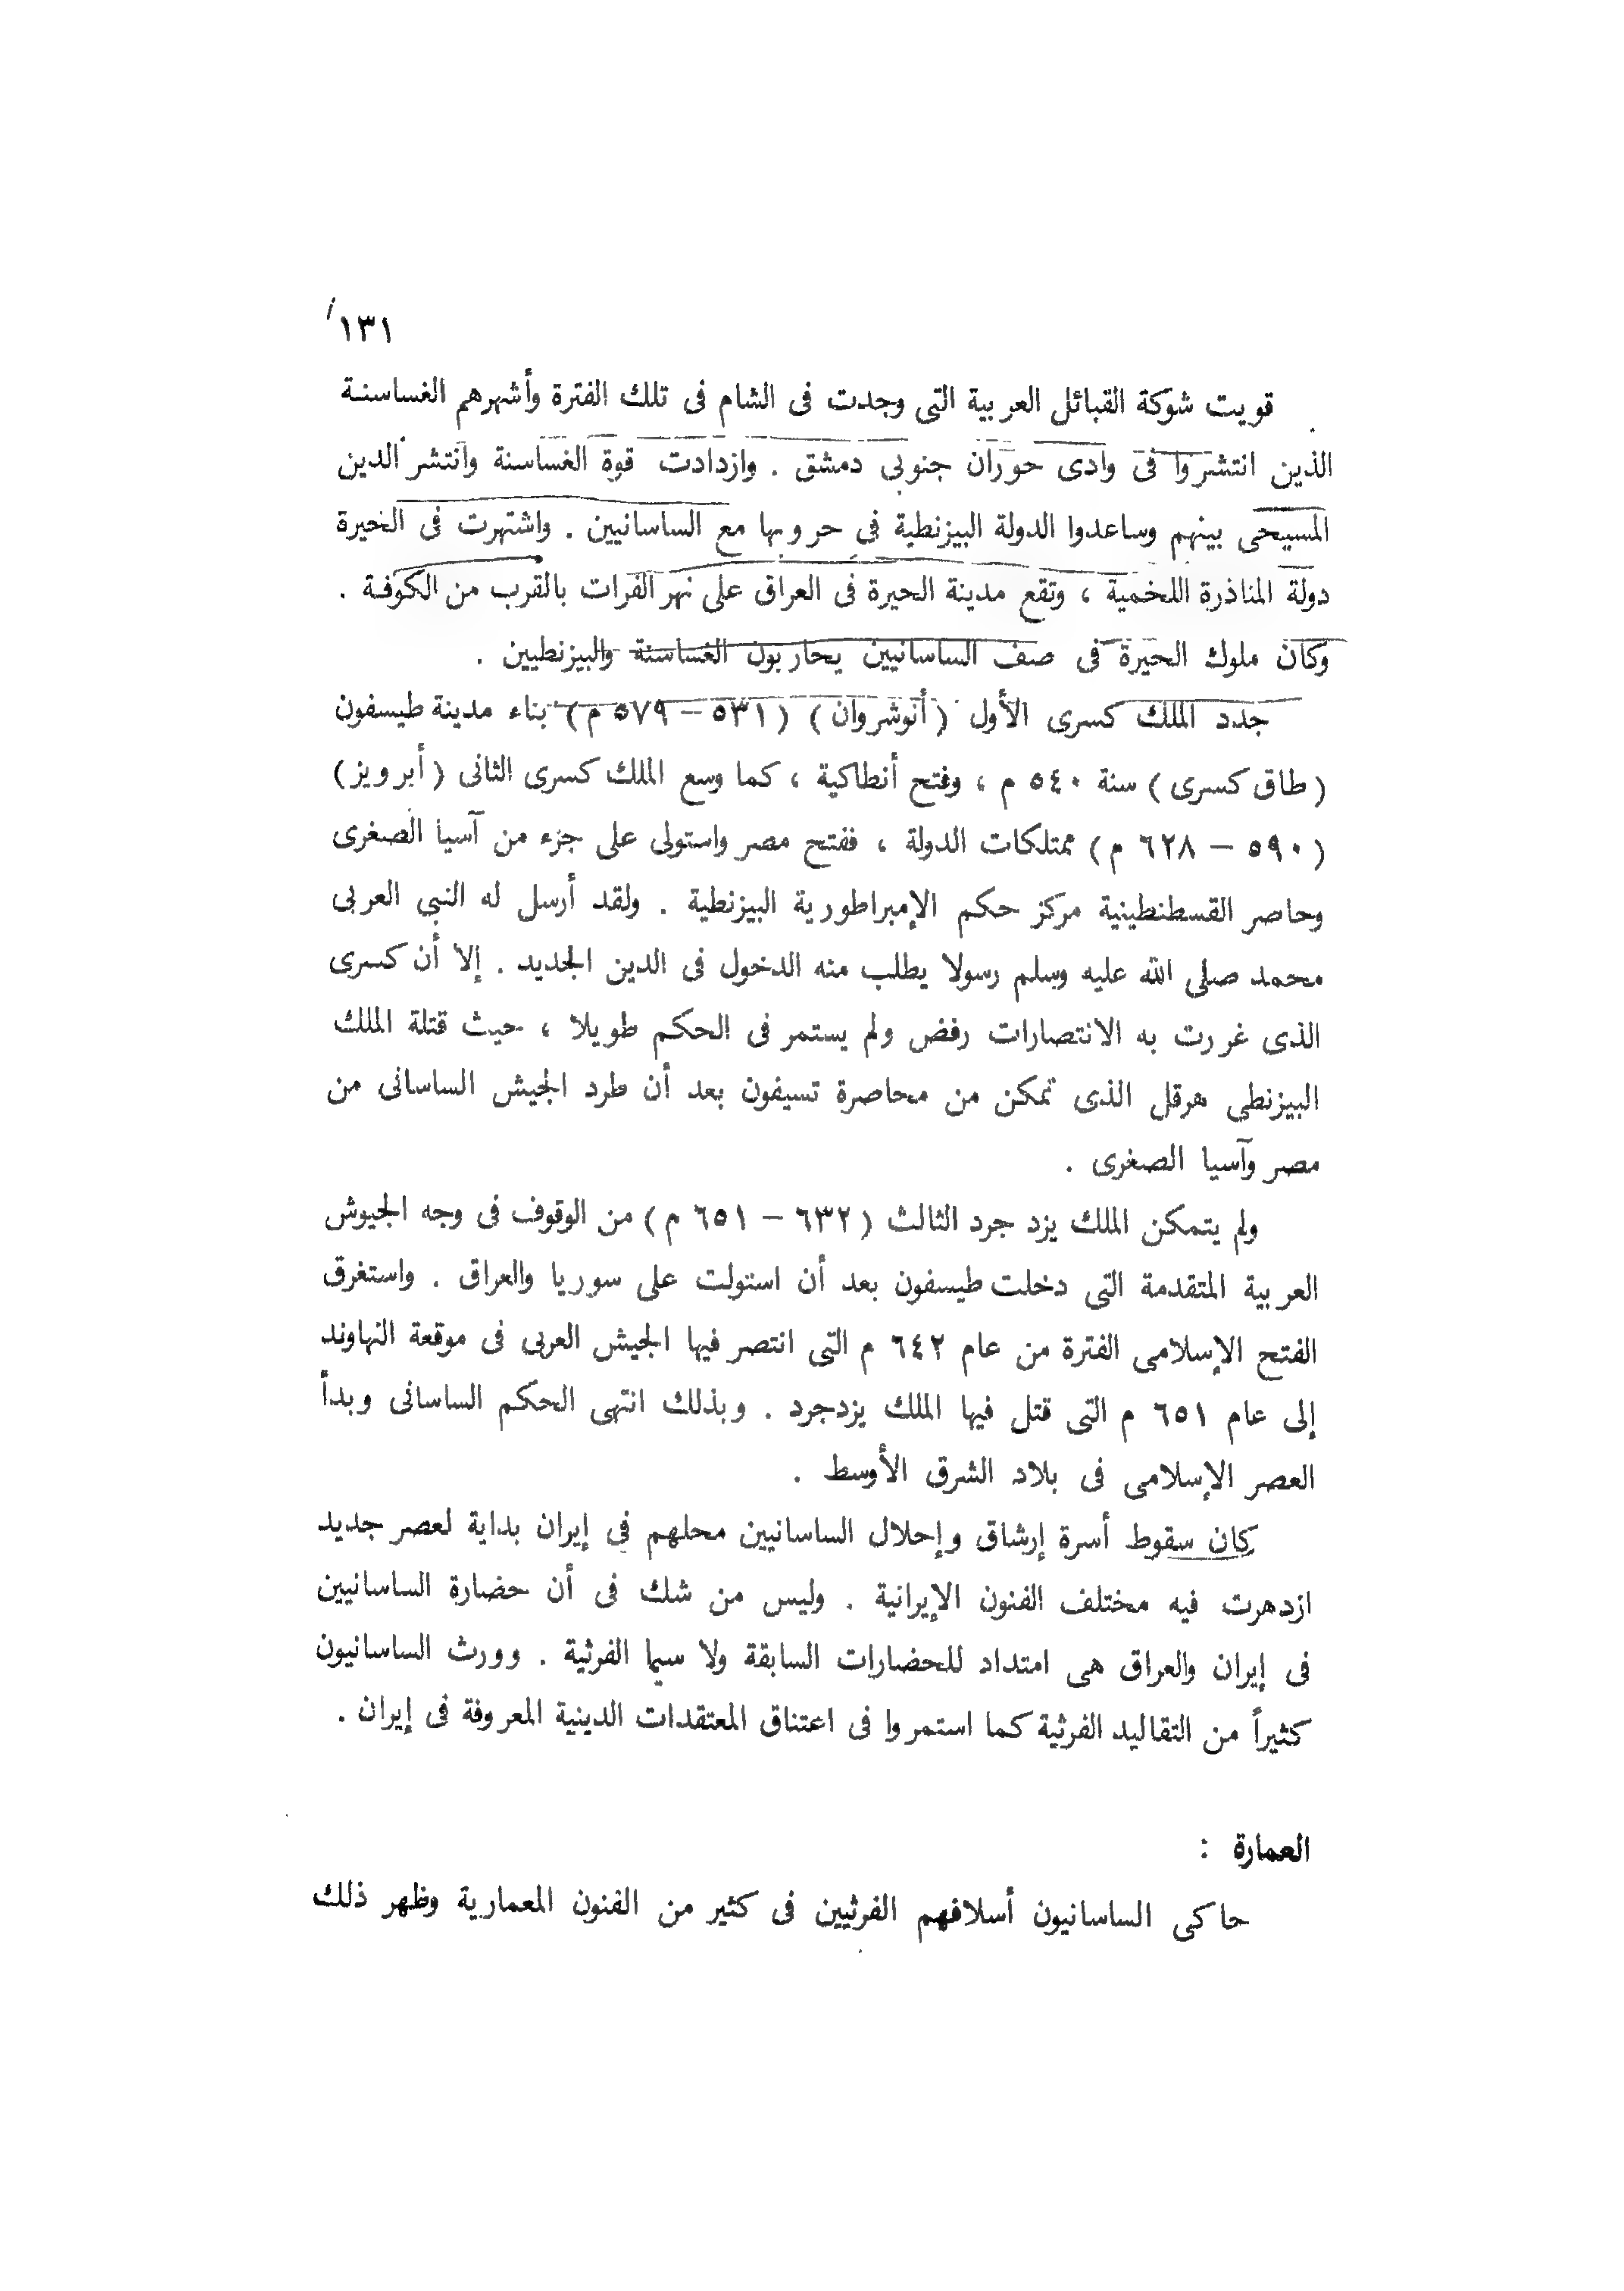 ١٣١
قويت شوكة القبائل العربية التى وجدت فى الشام فى تلك الفترة وأشهرهم الغساسنة
الذين انتشروا فى وادى حوران جنوبى دمشق . وازدادت قوة الغساسنة وانتشر الدين
المسيحى بينهم وساعدوا الدولة البيزنطية فى حروبها مع الساسانيين . واشتهرت فى الحيرة
دولة المناذرة اللخمية ، وتقع مدينة الحيرة فى العراق على نهر الفرات بالقرب من الكوفة .
وكان ملوك الحيرة فى صف الساسانيين يحاربون الغساسنة والبيزنطيين .
جدد الملك كسرى الأول (أنوشروان) (٥٣١ – ٥٧٩ م) بناء مدينة طيسفون
(طاق كسرى) سنة ٥٤٠ م ، وفتح أنطاكية ، كما وسع الملك كسرى الثانى (أبرويز)
(٥٩٠ – ٦٢٨ م) ممتلكات الدولة ، ففتح مصر واستولى على جزء من آسيا الصغرى
وحاصر القسطنطينية مركز حكم الإمبراطورية البيزنطية . ولقد أرسل له النبى العربى
محمد صلى الله عليه وسلم رسولا يطلب منه الدخول فى الدين الجديد . إلا أن كسرى
الذى غررت به الانتصارات رفض ولم يستمر فى الحكم طويلا ، حيث قتلة الملك
البيزنطى هرقل الذى تمكن من محاصرة تسيفون بعد أن طرد الجيش الساسانى من
مصر وآسيا الصغرى .
ولم يتمكن الملك يزد جرد الثالث (٦٣٢ – ٦٥١ م) من الوقوف فى وجه الجيوش
العربية المتقدمة التى دخلت طيسفون بعد أن استولت على سوريا والعراق . واستغرق
الفتح الإسلامى الفترة من عام ٦٤٢ م التى انتصر فيها الجيش العربى فى موقعة النهاوند
إلى عام ٦٥١ م التى قتل فيها الملك يزدجرد . وبذلك انتهى الحكم الساسانى وبدأ
العصر الإسلامى فى بلاد الشرق الأوسط .
كان سقوط أسرة إرشاق وإحلال الساسانيين محلهم فى إيران بداية لعصر جديد
ازدهرت فيه مختلف الفنون الإيرانية . وليس من شك فى أن حضارة الساسانيين
فى إيران والعراق هى امتداد للحضارات السابقة ولا سيما الفرثية . وورث الساسانيون
كثيراً من التقاليد الفرثية كما استمروا فى اعتناق المعتقدات الدينية المعروفة فى إيران .
العمارة :
حاكى الساسانيون أسلافهم الفرثيين فى كثير من الفنون المعمارية وظهر ذلك